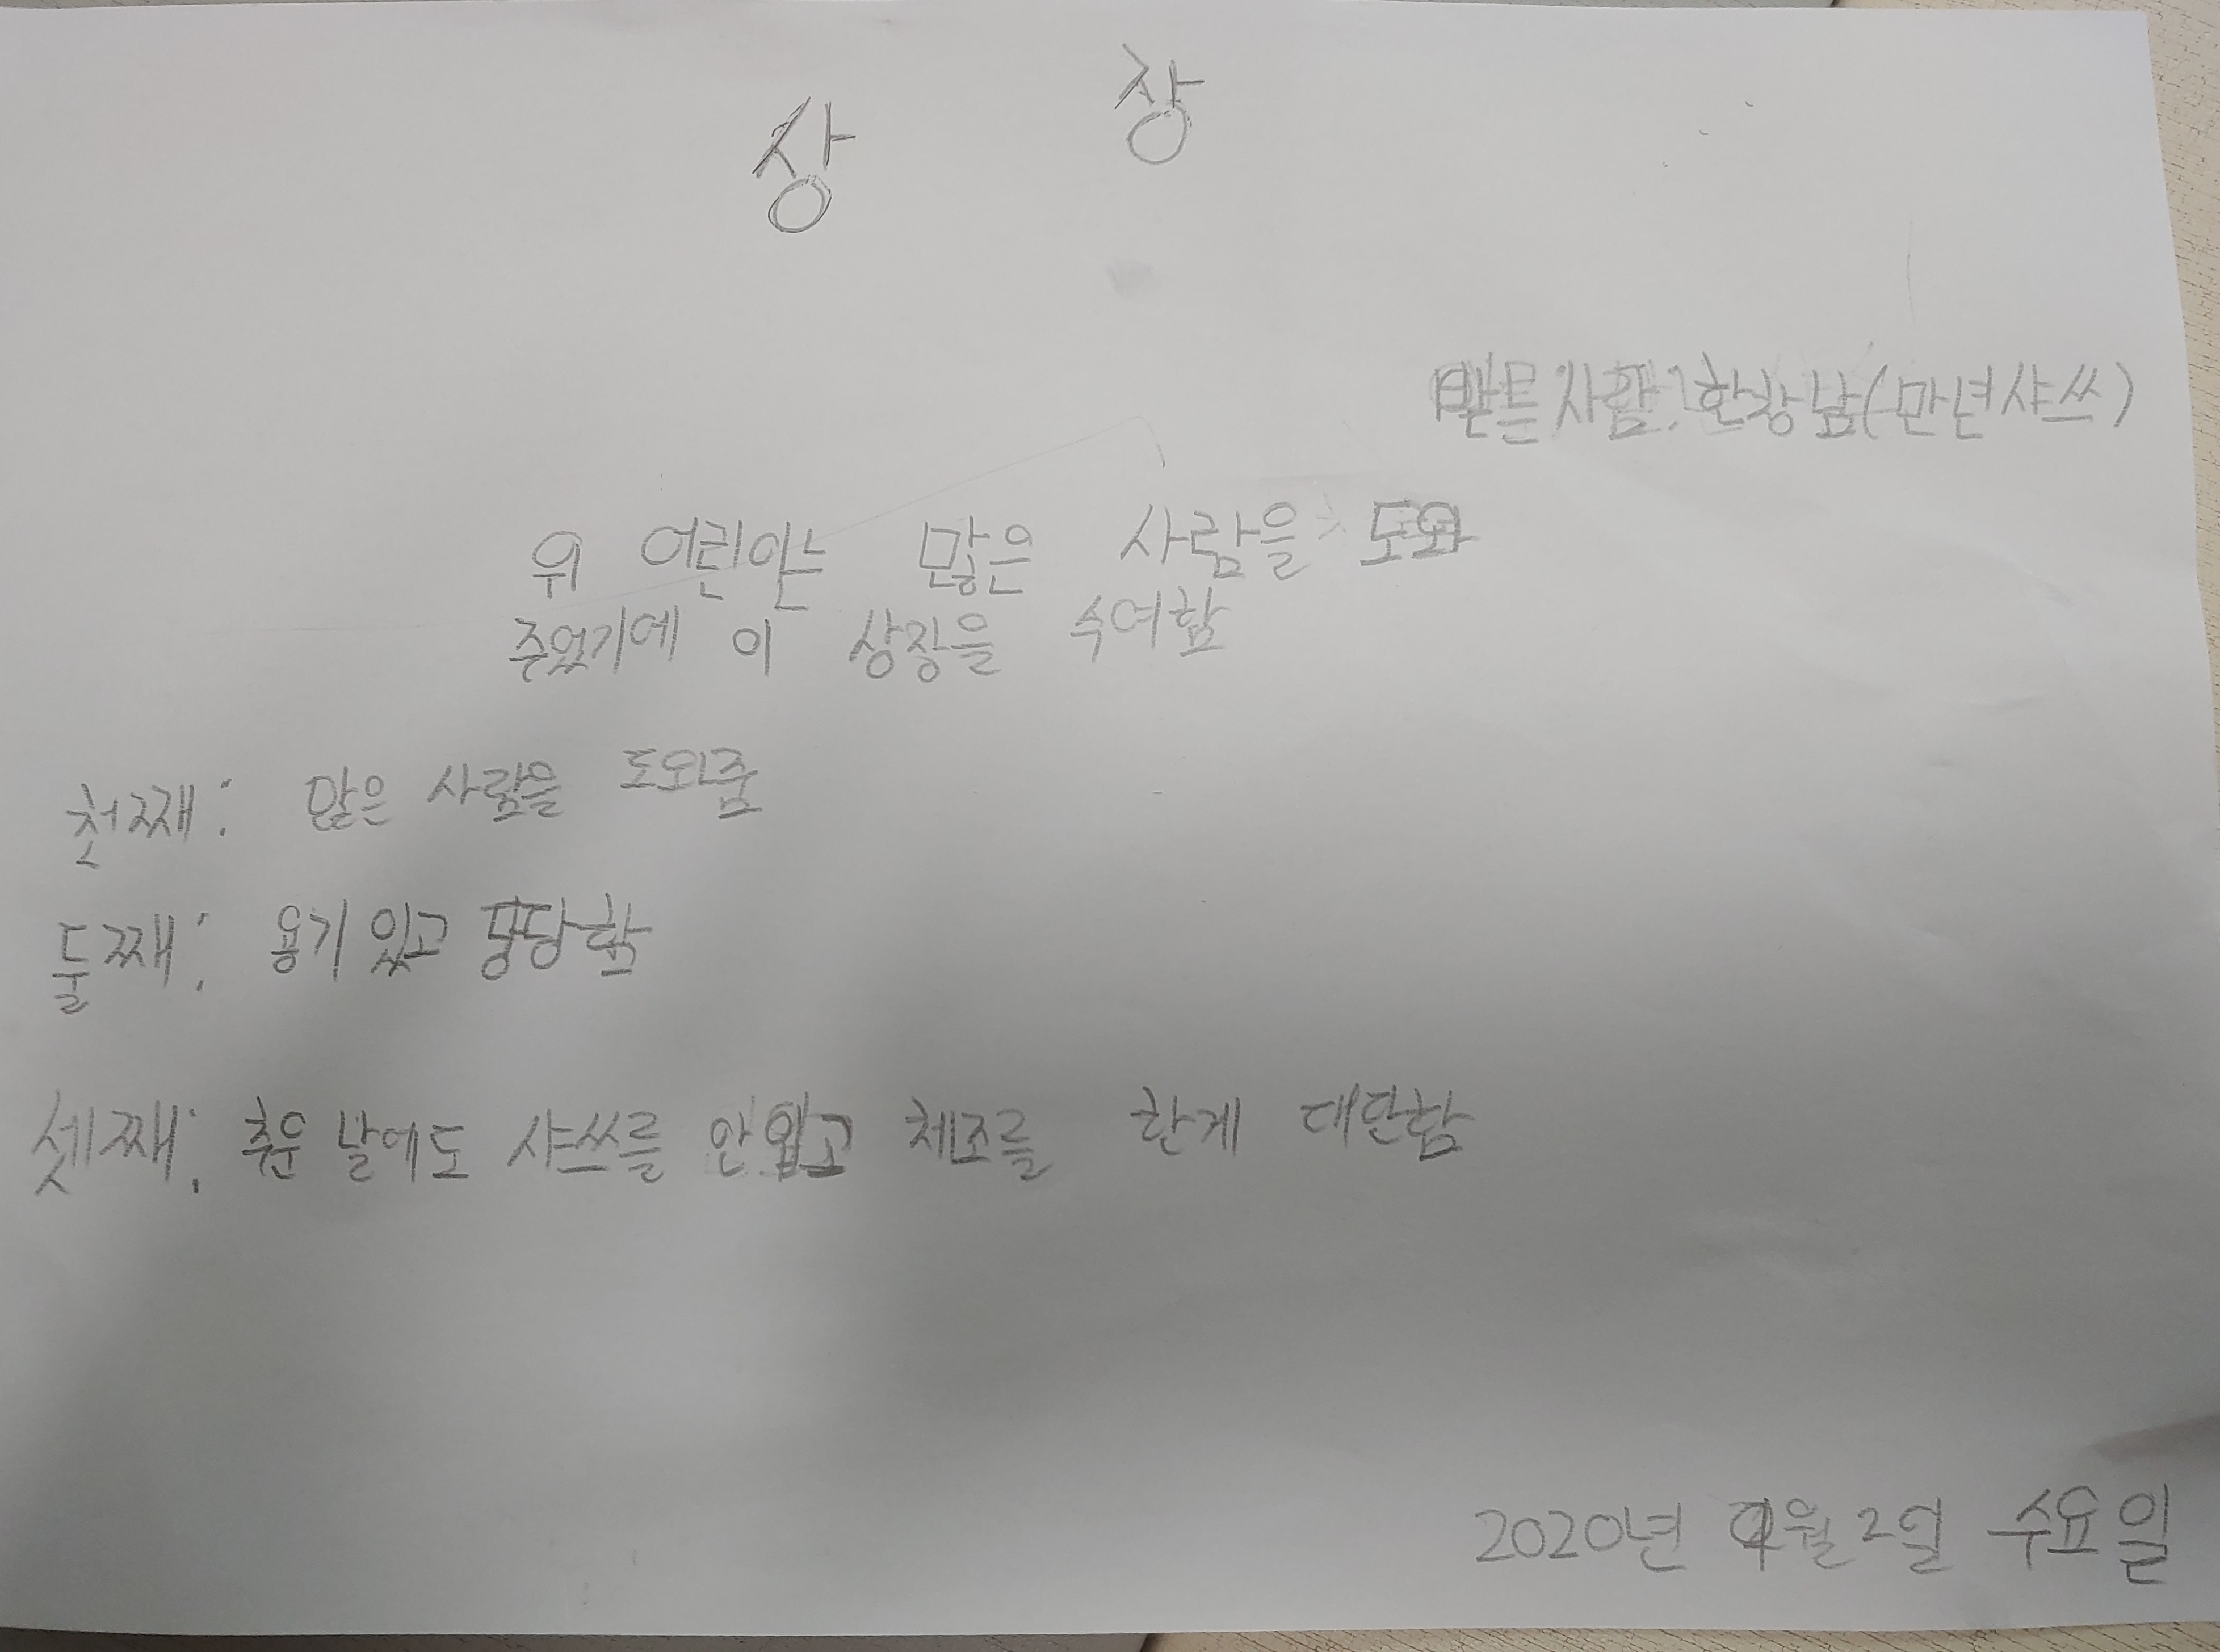 상 장
사람:한창남(만년샤쓰)
위 어린이는 많은 사람을 도와
주었기에 이 상장을 수여함
첫째: 많은 사람을 도와줌
둘째: 용기 있고 당당함
셋째: 추운 날에도 샤쓰를 안 입고 체조를 한게 대단함
2020년 9월 2일 수요일